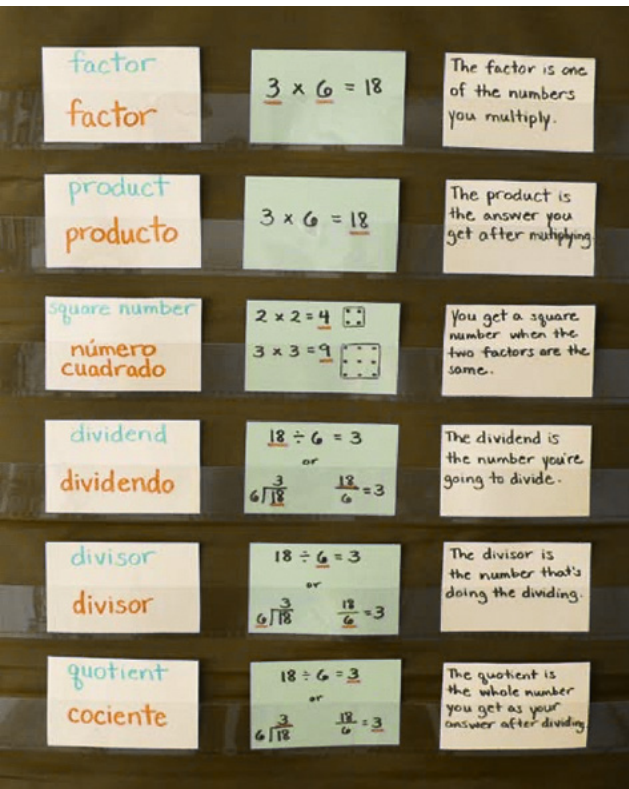 factor
factor
3 × 6 = 18
The factor is one
of the numbers
you multiply.
product
producto
3 × 6 = 18
The product is
the answer you
get after mutiplying.
square number
número
cuadrado
2 × 2 = 4
3 × 3 = 9
You get a square
number when the
two factors are the
same.
dividend
dividendo
18 ÷ 6 = 3
or
3
6)18
18
6 = 3
The dividend is
the number you're
going to divide.
divisor
divisor
18 ÷ 6 = 3
or
3
6)18
18
6 = 3
The divisor is
the number that's
doing the dividing.
quotient
cociente
18 ÷ 6 = 3
or
3
6)18
18
6 = 3
The quotient is
the whole number
you get as your
answer after dividing